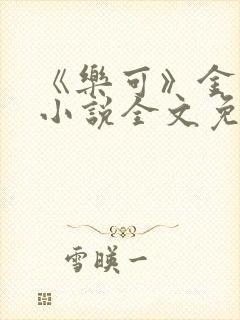 《樂可》金
小說全文免
雪暎一